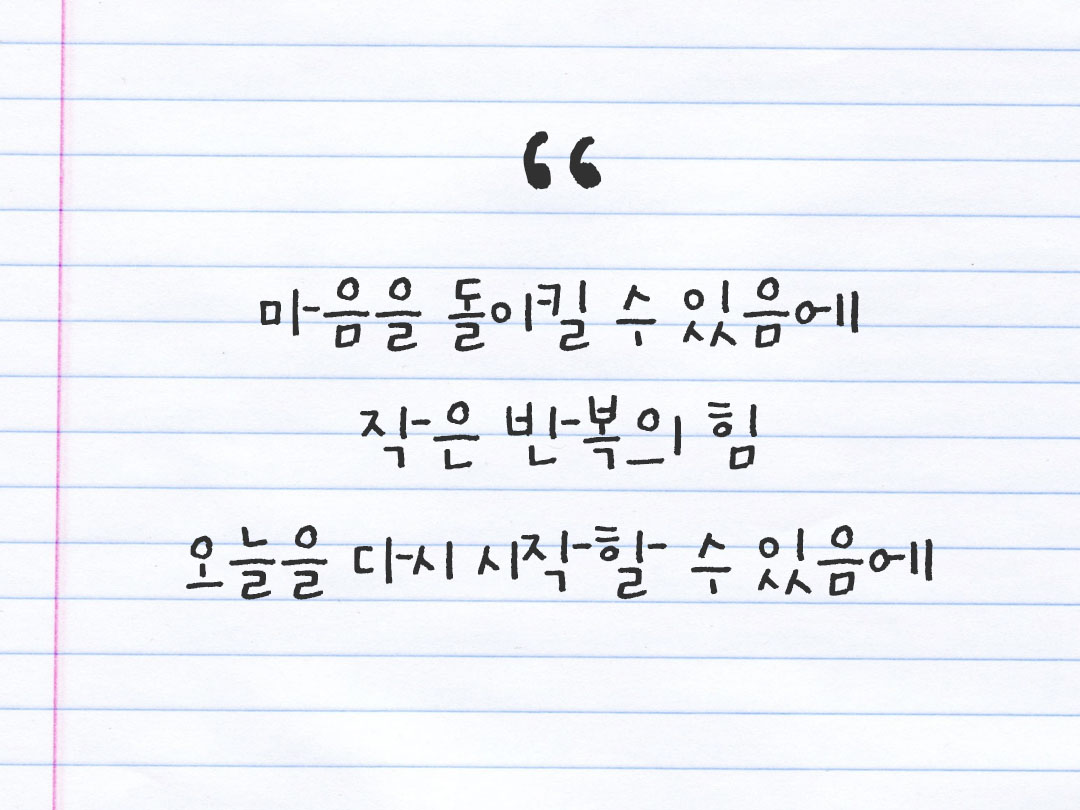 “
마음을 돌이킬 수 있음에
작은 반복의 힘
오늘을 다시 시작할 수 있음에